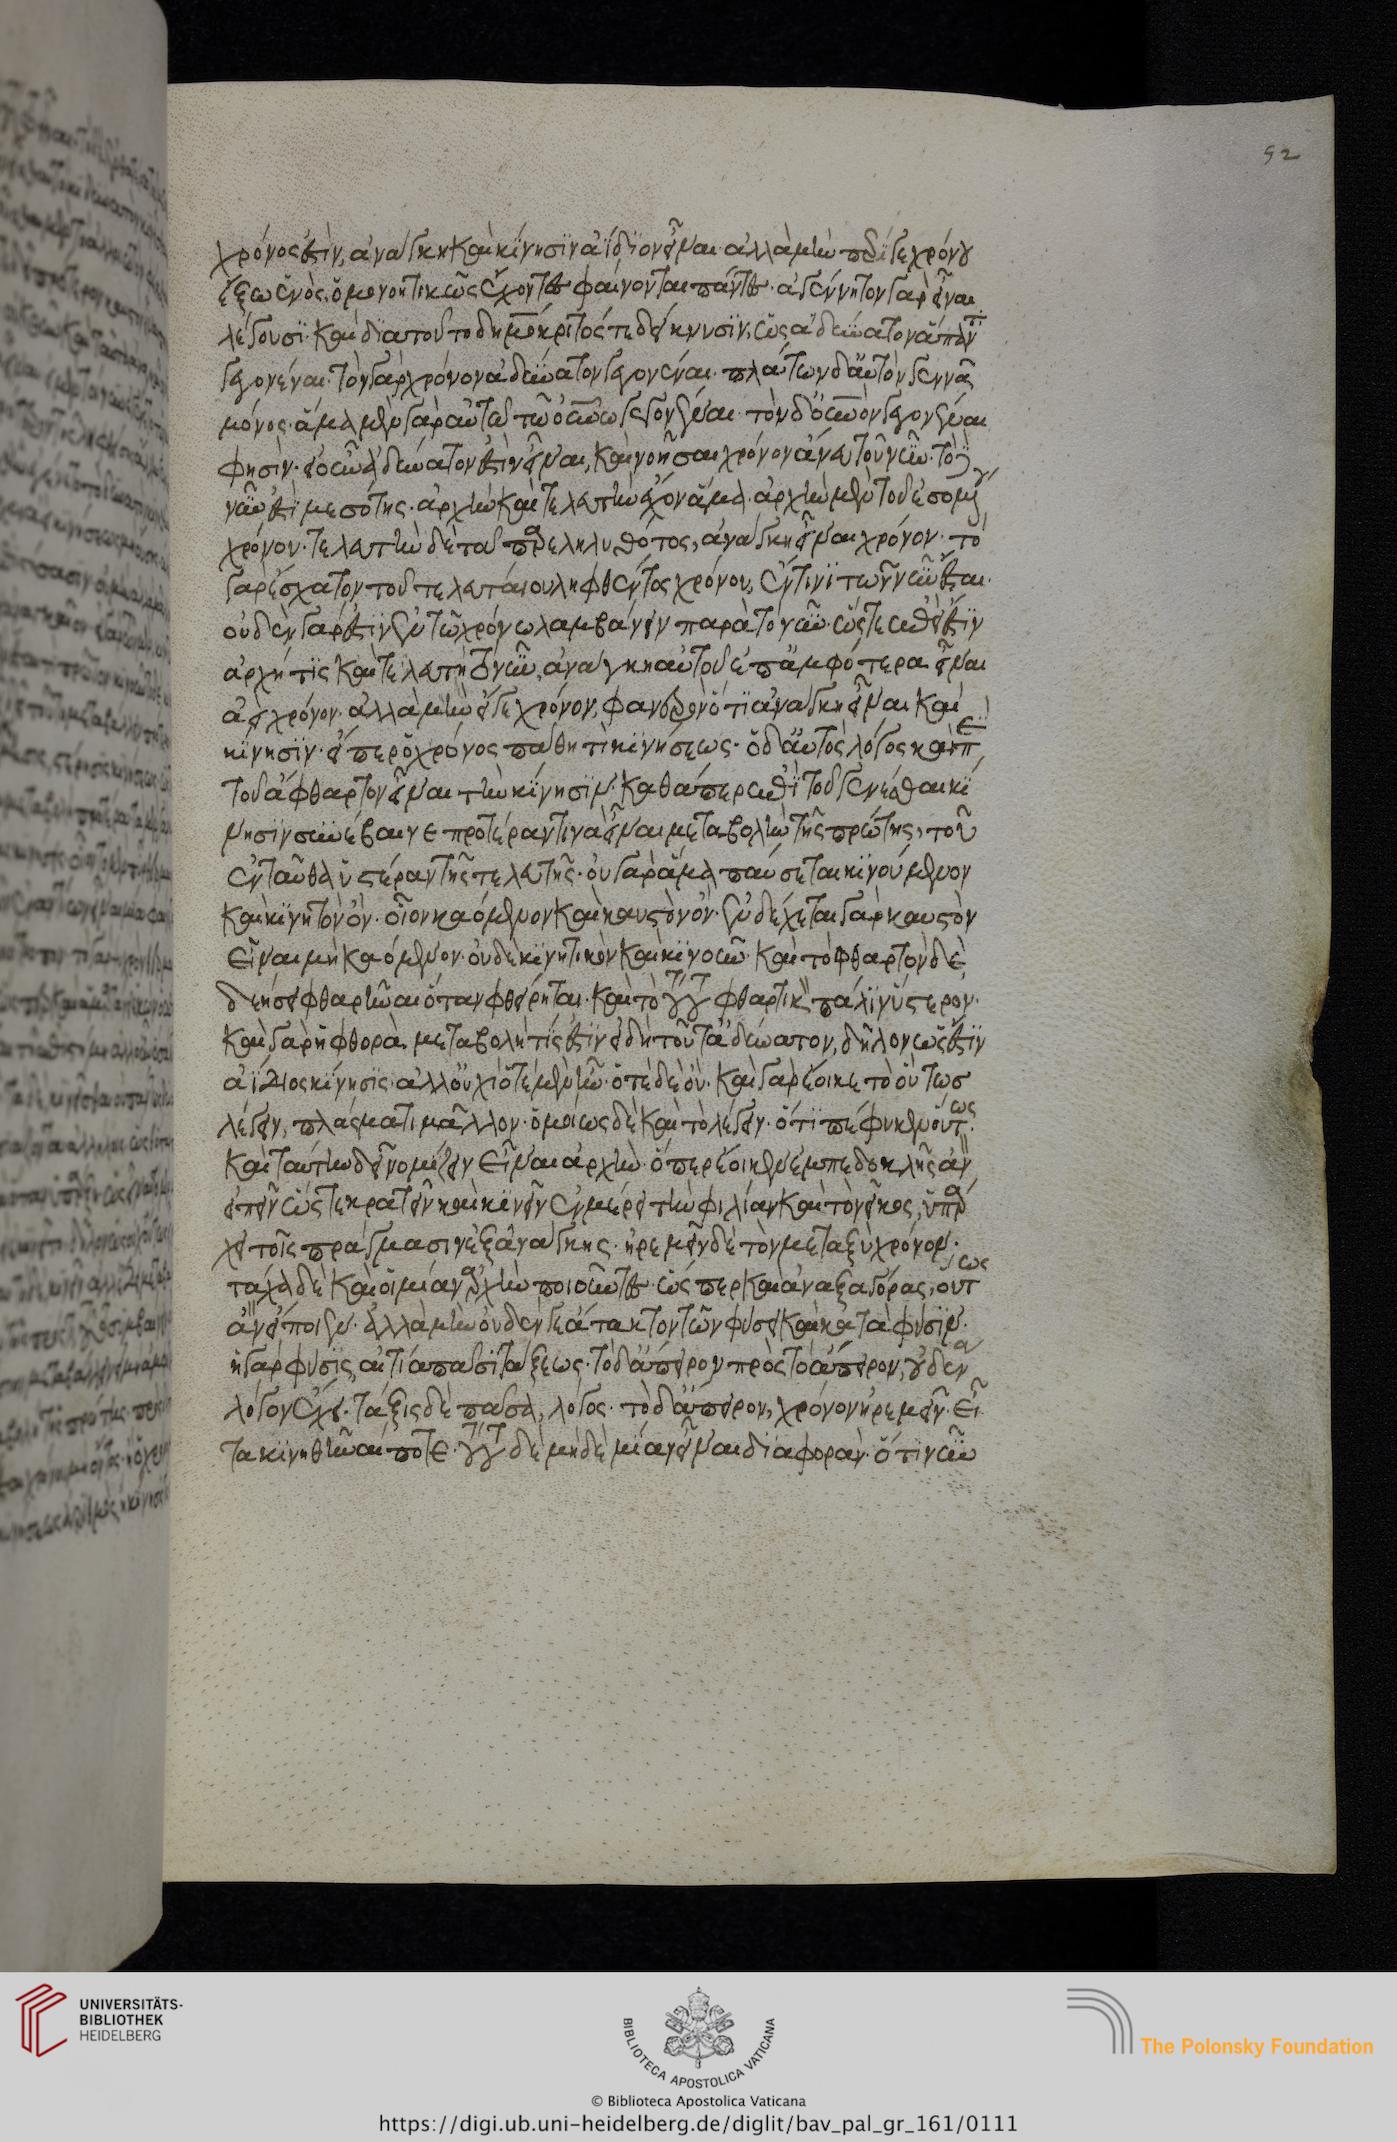 χρόνος ἐστὶν, ἀνάγκη καὶ κίνησιν ἀΐδιον εἶναι· ἀλλὰ μὴν περί γε χρόνου
ἔξω ἑνὸς, ὁμονοητικῶς ἔχοντες φαίνονται πάντες· ἀγέννητον γὰρ εἶναι
λέγουσι· καὶ διὰ τοῦτο δημόκριτός τε δείκνυσιν, ὡς ἀδύνατον ἅπαντα
γεγονέναι· τὸν γὰρ χρόνον ἀδύνατον γεγονέναι· πλάτων δ' αὐτὸν γεννᾶ
μόνος· ἅμα μὲν γὰρ αὐτὸν τῶ οὐνῶ γεγονέναι· τὸν δ' οὐνὸν γεγονέναι
φησίν· εἰ οὖν ἀδύνατον ἐστὶν εἶναι, καὶ νοῆσαι χρόνον ἄνευ τοῦ νῦν· τὸ δὲ
νῦν ἐστὶ μεσότης· ἀρχὴν καὶ τελευτὴν ἔχον ἅμα· ἀρχὴν μὲν τοῦ ἐσομένου
χρόνου· τελευτὴν δὲ τοῦ παρεληλυθότος, ἀνάγκη εἶναι χρόνον· τὸ
γὰρ ἔσχατον τοῦ τελευταίου ληφθέντος χρόνου, ἔν τινι τῶν νῦν ἔσται·
οὐδὲν γάρ ἐστιν ἐν τῶ χρόνω λαμβάνειν παρὰ τὸ νῦν· ὥστε ἐπεί ἐστιν
ἀρχή τις καὶ τελευτὴ τὸ νῦν, ἀνάγκη αὐτοῦ ἐπ' ἀμφότερα εἶναι
ἀεὶ χρόνον· ἀλλὰ μὴν εἴγε χρόνον, φανερὸν ὅτι ἀνάγκη εἶναι καὶ
κίνησιν· εἴπερ ὁ χρόνος πάθη τι κινήσεως· ὁ δ' αὐτὸς λόγος καὶ περὶ
τοῦ ἄφθαρτον εἶναι τὴν κίνησιν· καθάπερ ἐπὶ τοῦ γενέσθαι κί
νησιν συνέβαινε προτέραν τινὰ εἶναι μεταβολὴν τῆς πρώτης, οὕτως
ἐνταῦθα ὑστέραν τῆς τελευταίας· οὐ γὰρ ἅμα παύσεται κινούμενον
καὶ κινητὸν ὄν· οἷον καόμενον καὶ καυστὸν ὄν· ἐνδέχεται γὰρ καυστὸν
εἶναι μὴ καόμενον· οὐδὲ κινητικὸν καὶ κινοῦν· καὶ τὸ φθαρτὸν δὲ
δεήσει φθαρῆναι ὅταν φθείρηται· καὶ τὸ τούτου φθαρτικὸν πάλιν ὕστερον·
καὶ γὰρ ἡ φθορὰ μεταβολή τίς ἐστιν· εἰ δὴ ταῦτα ἀδύνατον, δῆλον ὡς ἔστιν
ἀΐδιος κίνησις· ἀλλ' οὐχὶ ὁτὲ μὲν ἦν· ὁτὲ δὲ οὔ· καὶ γὰρ ἔοικε τὸ οὕτως
λέγειν, πλάσματι μᾶλλον· ὁμοίως δὲ καὶ τὸ λέγειν· ὅτι πέφυκεν οὕτως·
καὶ ταύτην δεῖ νομίζειν εἶναι ἀρχὴν· ὅπερ ἔοικεν ἐμπεδοκλῆς ἂν
εἰπεῖν ὥς τε κρατεῖν καὶ κινεῖν ἐν μέρει τὴν φιλίαν καὶ τὸ νεῖκος, ὑπάρ
χει τοῖς πράγμασιν ἐξ ἀνάγκης· ἠρεμεῖν δὲ τὸν μεταξὺ χρόνον·
τάχα δὲ καὶ οἱ μίαν ἀρχὴν ποιοῦντες· ὥσπερ καὶ ἀναξαγόρας, οὕτως
ἂν εἴποιεν· ἀλλὰ μὴν οὐδέν γε ἄτακτον τῶν φύσει καὶ κατὰ φύσιν·
ἡ γὰρ φύσις, αἰτία πᾶσι τάξεως· τὸ δ' ἄπειρον πρὸς τὸ ἄπειρον, οὐδένα
λόγον ἔχει· τάξις δὲ πᾶσα, λόγος· τὸ δ' ἄπειρον, χρόνον ἠρεμεῖν· εἶ
τα κινηθῆναί ποτε· τούτου δὲ μηδὲ μίαν εἶναι διαφορὰν· ὅτι νῦν
52
UNIVERSITÄTS-
BIBLIOTHEK
HEIDELBERG
BIBLIOTECA APOSTOLICA VATICANA
The Polonsky Foundation
© Biblioteca Apostolica Vaticana
https://digi.ub.uni-heidelberg.de/diglit/bav_pal_gr_161/0111